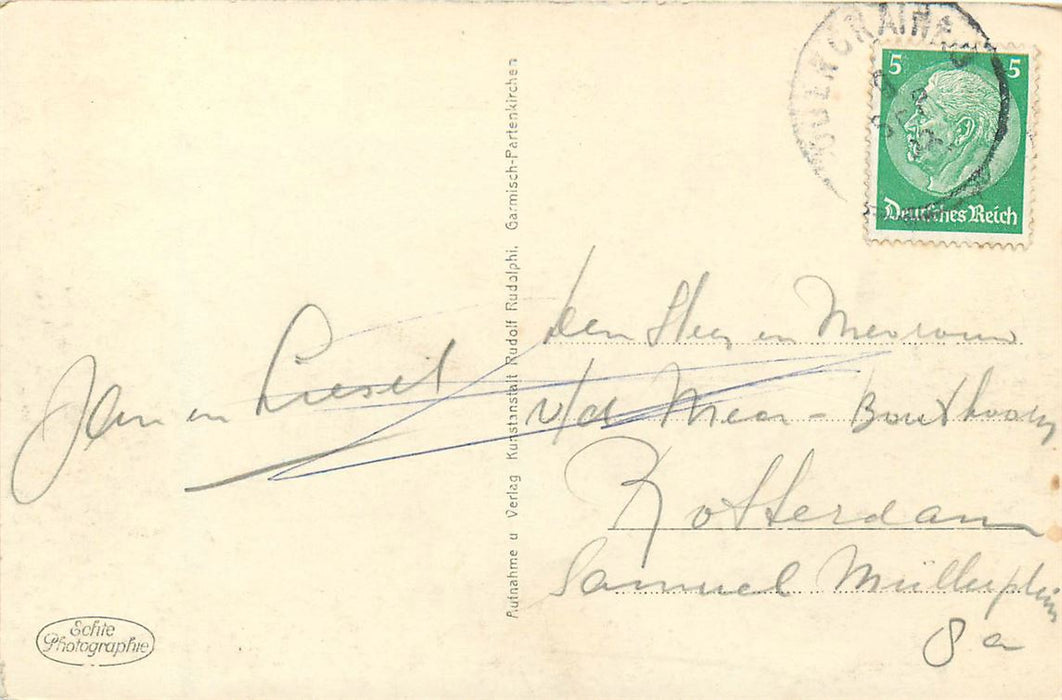 OBERGRAINAU
5 5
Deutsches Reich
Jan en Liesel
Aufnahme u Verlag Kunstanstalt Rudolf Rudolphi, Garmisch-Partenkirchen
den Heer en Mevrouw
v/d Meer - Bouthoorn
Rotterdam
Samuel Müllerplein
8a
Echte
Photographie